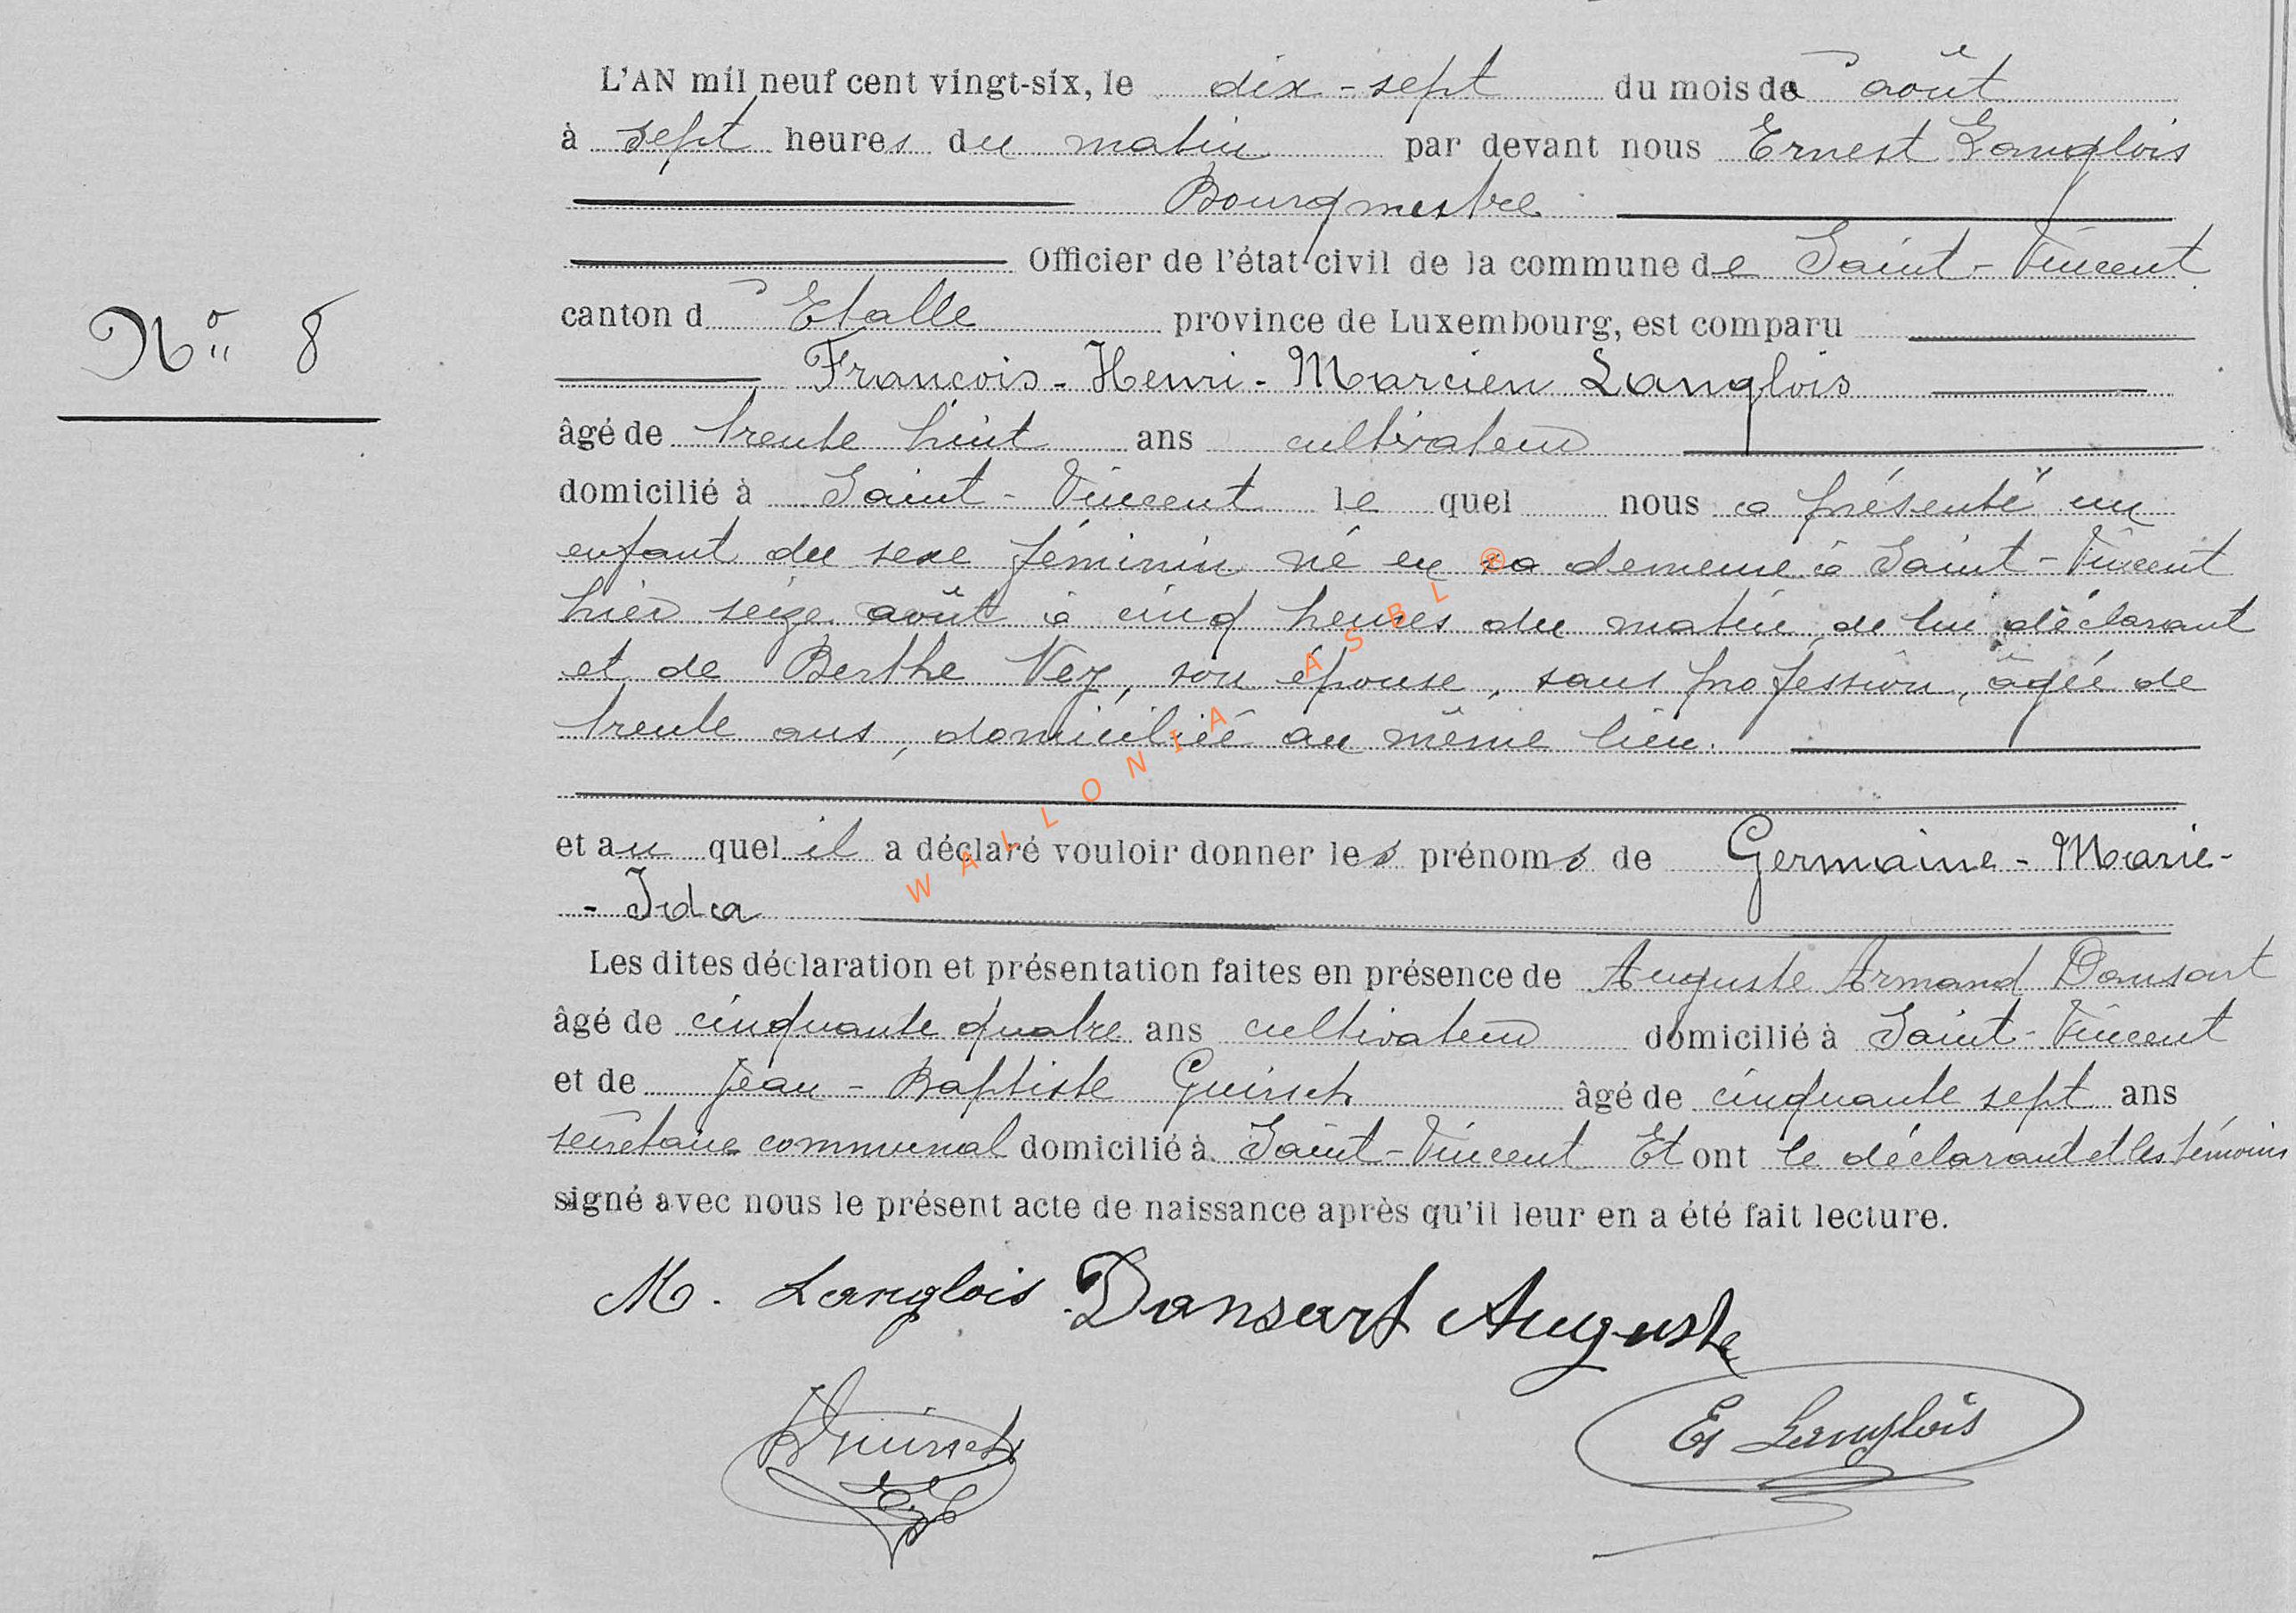 L'AN mil neuf cent vingt-six, le dix-sept du mois d'août
à sept heures du matin par devant nous Ernest Langlois
Bourgmestre
Officier de l'état civil de la commune de Saint-Vincent
canton d'Etalle province de Luxembourg, est comparu
N° 8
François-Henri-Marcien Langlois
âgé de trente huit ans cultivateur
domicilié à Saint-Vincent le quel nous a présenté un
enfant du sexe féminin né en sa demeure à Saint-Vincent
hier seize août à cinq heures du matin, de lui déclarant
et de Berthe Nez, son épouse, sans profession, âgée de
trente ans, domiciliée au même lieu.
WALLONIA ASBL ®
et au quel il a déclaré vouloir donner les prénoms de Germaine-Marie-
-Ida
Les dites déclaration et présentation faites en présence de Auguste Armand Dansart
âgé de cinquante quatre ans cultivateur domicilié à Saint-Vincent
et de Jean-Baptiste Guirsch âgé de cinquante sept ans
secrétaire communal domicilié à Saint-Vincent Et ont le déclarant et les témoins
signé avec nous le présent acte de naissance après qu'il leur en a été fait lecture.
M. Langlois Dansart Auguste
Guirsch Et Langlois